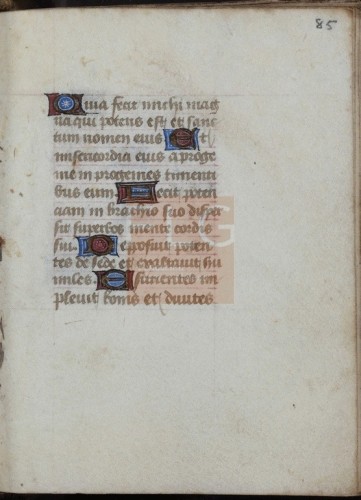 85
Quia fecit michi mag
na qui potens est et sanc
tum nomen eius Et
misericordia eius a proge
nie in progenies timenti
bus eum. Fecit poten
ciam in brachio suo disper
sit superbos mente cordis
sui. Deposuit poten
tes de sede et exaltauit hu
miles. Esurientes im
pleuit bonis et diuites